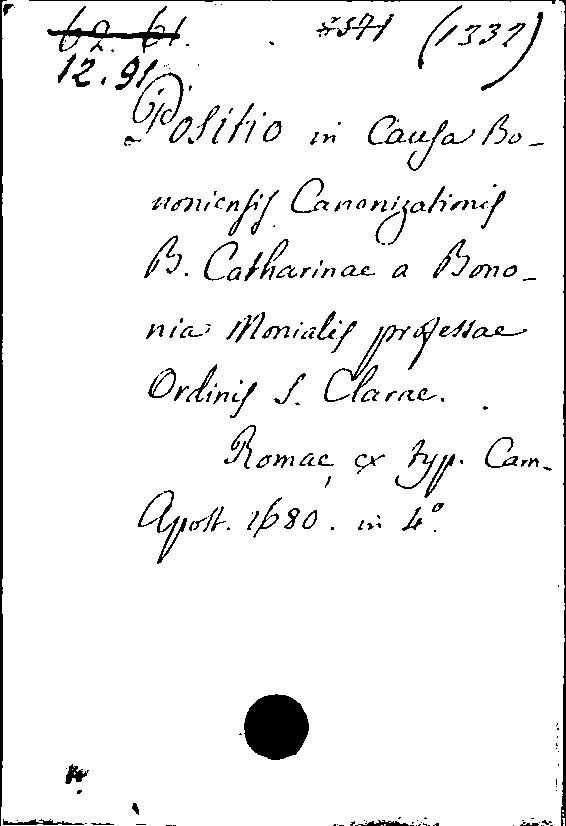 62. 61. (1332)
12.91
Positio in Causa Bo-
noniensis Canonizationis
B. Catharinae a Bono-
nia Monialis professae
Ordinis S. Clarae.
Romae, ex typ. Cam-
Apost. 1680. in 4°.